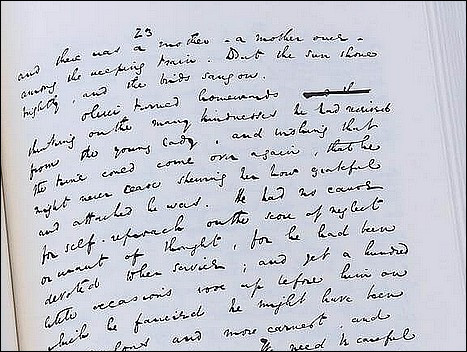 23
and there was a mother - a mother once -
among the weeping train. But the sun shone
brightly, and the birds sang on.
Oliver turned homewards
thinking on the many kindnesses he had received
from the young lady, and wishing that
the time could come over again, that he
might never cease shewing her how grateful
and attached he was. He had no cause
for self-reproach on the score of neglect
or want of thought, for he had been
devoted to her service; and yet a hundred
little occasions rose up before him on
which he fancied he might have been
zealous and more earnest, and
We need be careful